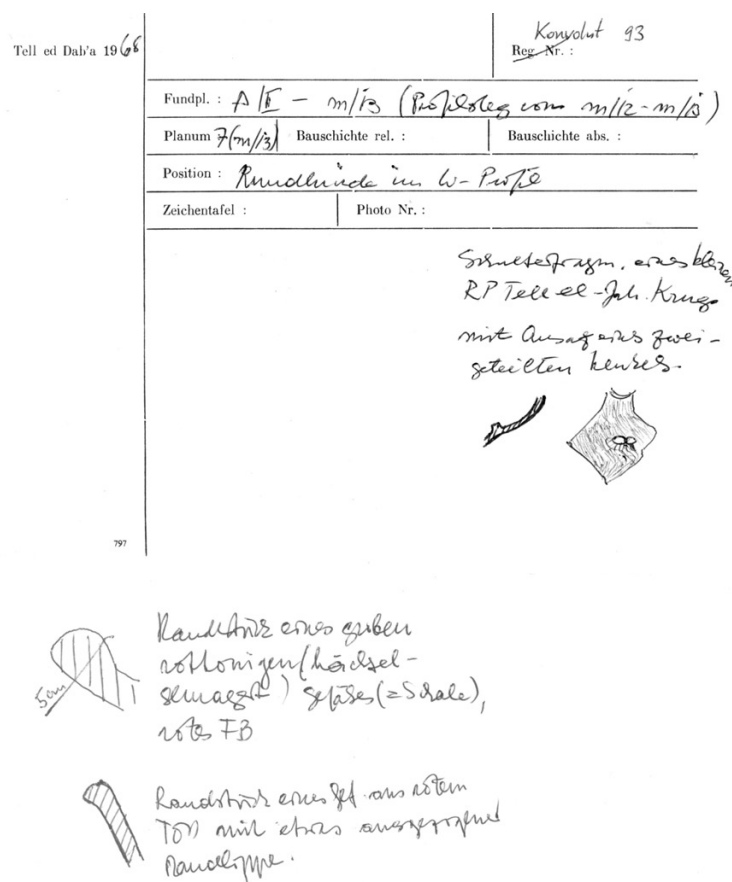 Tell ed Dab'a 1968
Konvolut 93
Reg. Nr. :
Fundpl. : A/II – m/13 (Profilsteg von m/12-m/13)
Planum 7(m/13) Bauschichte rel. : Bauschichte abs. :
Position : im W-Profil
Zeichentafel : Photo Nr. :
Schulterfragm. eines kleinen
RP Tell el-Jah. Kruges
mit Ansatz eines zwei-
geteilten Henkels.
797
Randstück eines groben
rottonigen (häcksel-
gemagert) Gefäßes (=Schale),
rotes FB
5cm
Randstück eines Gef. aus rotem
Ton mit etwas ausgezogener
Randlippe.